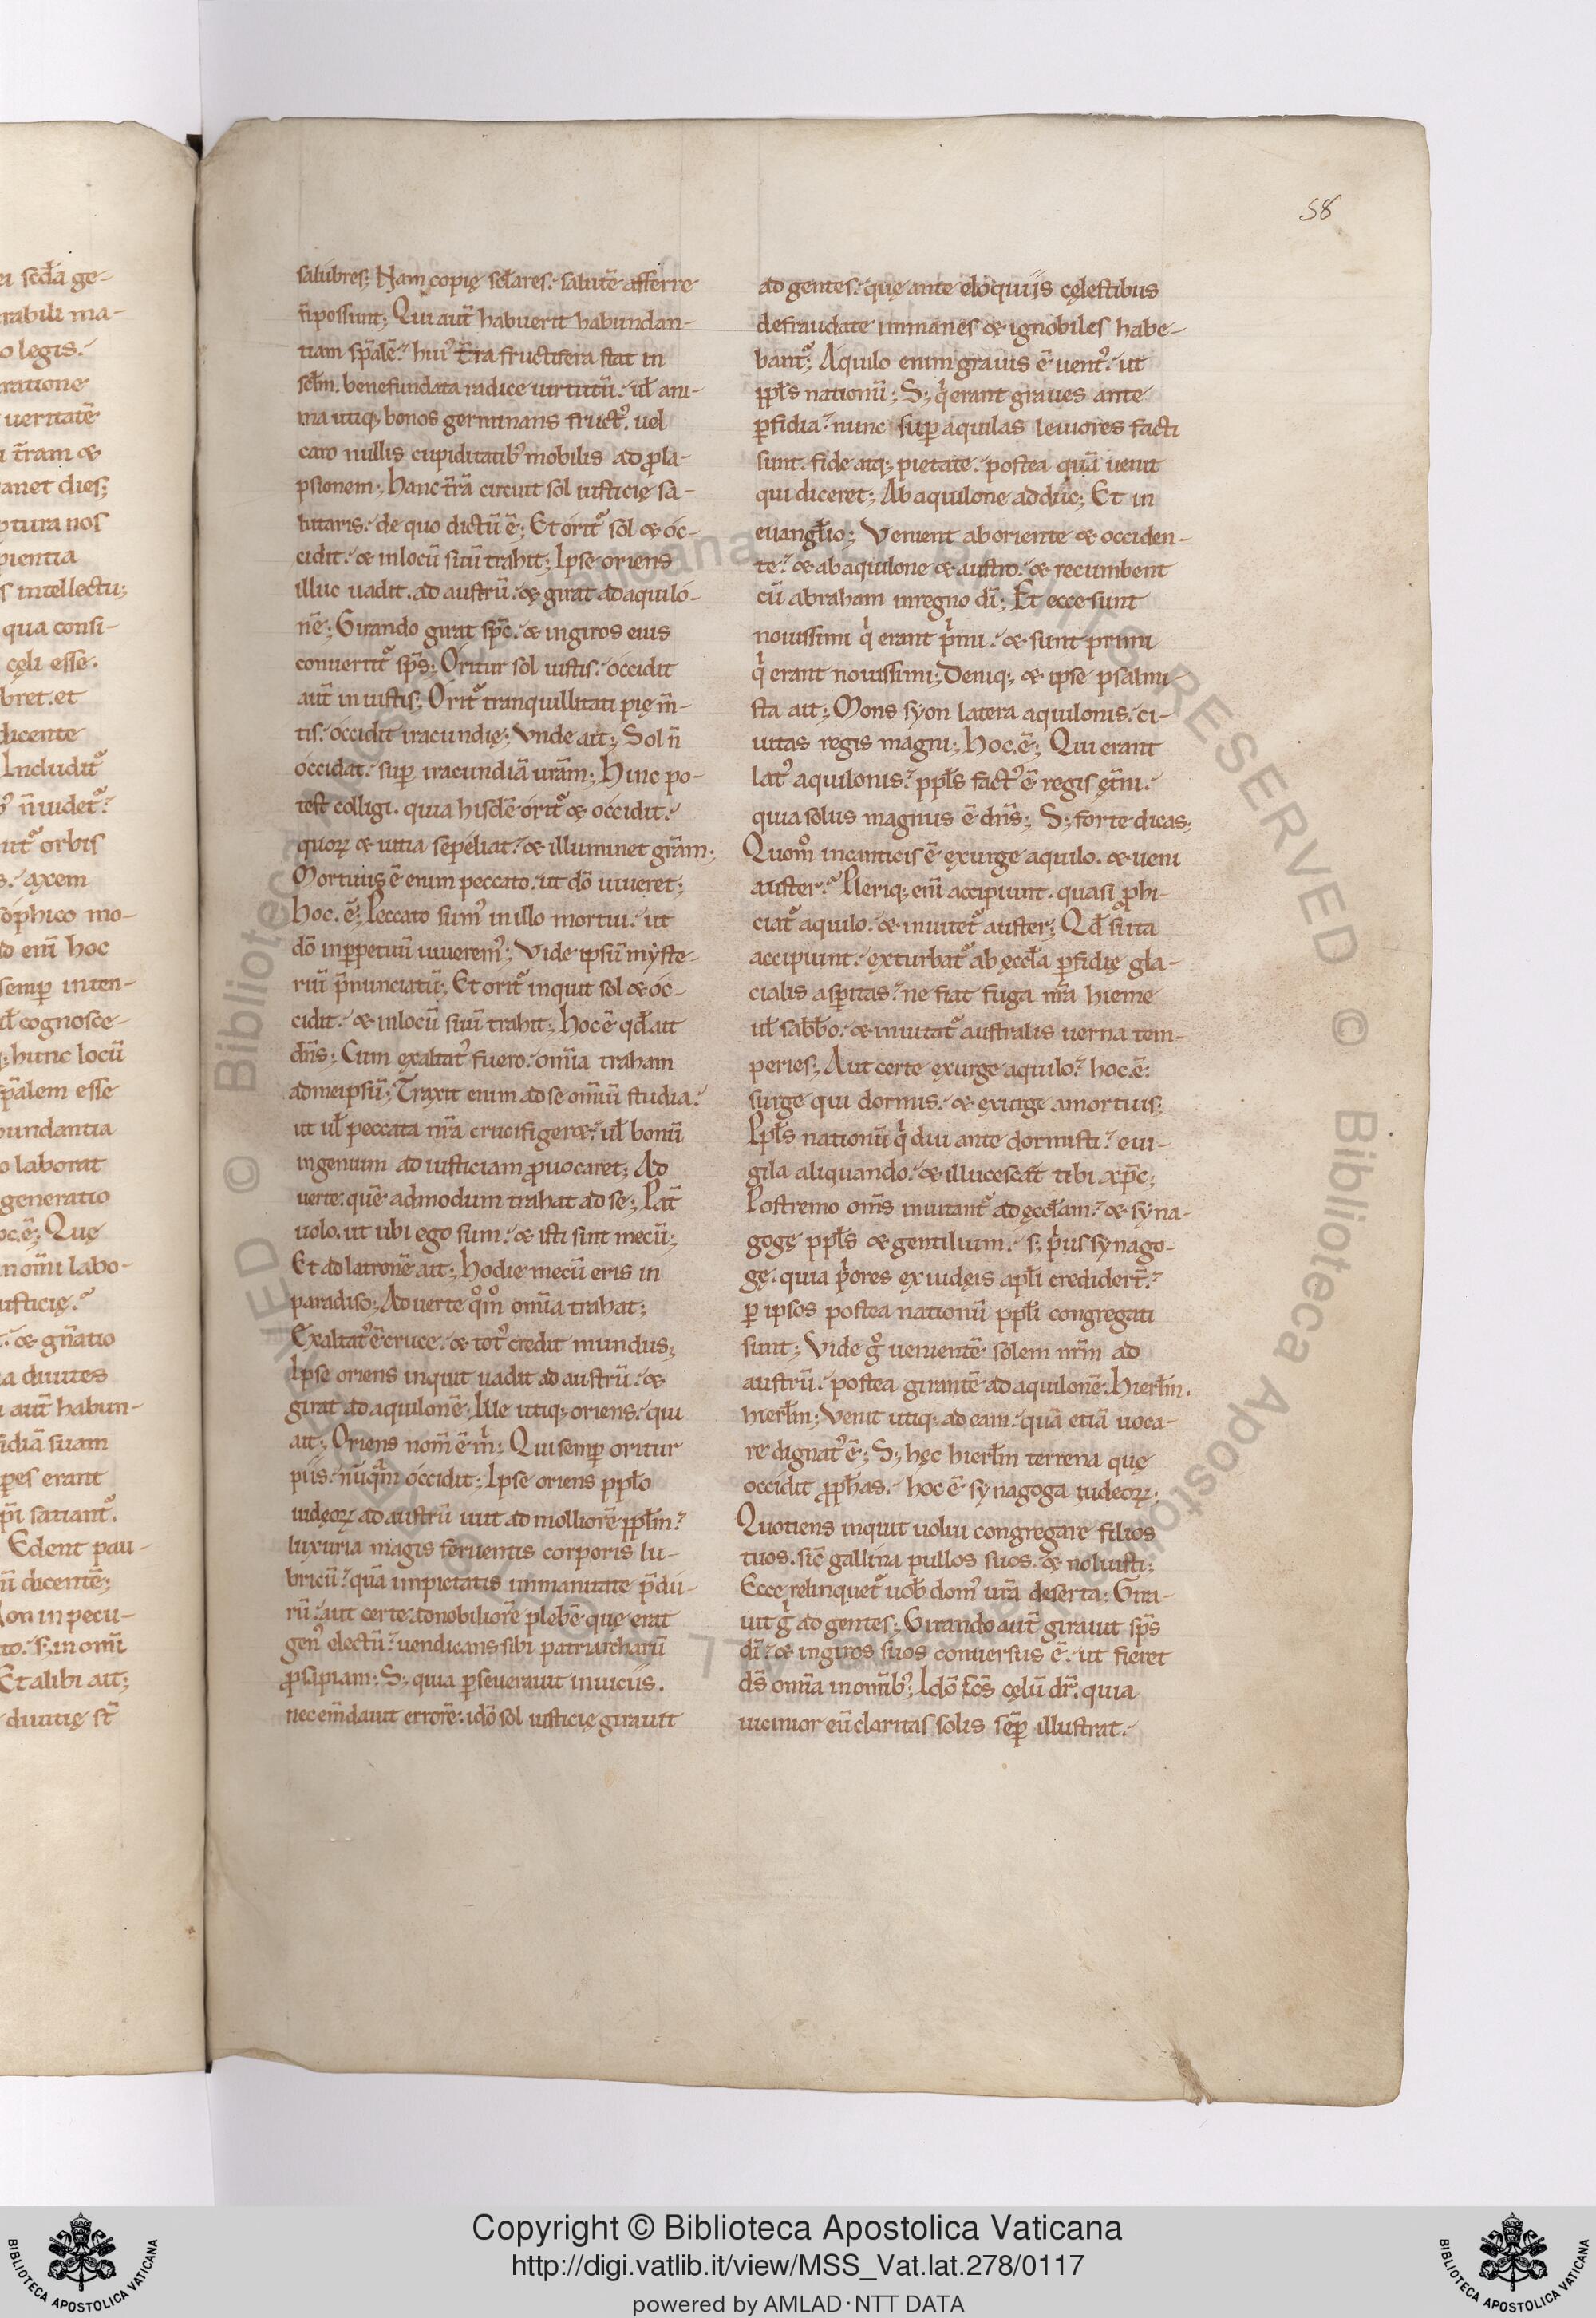 58
salubres; Nam copię sęłares. salutē afferre
n̄ possunt; Qui aut̄ habuerit habundan-
tiam sp̄alē. hui᾿ t̄ra fructifera stat in
sęłm. benefundata radice uirtutū. ul̄ ani-
ma utiq; bonos germinans fruct᾿. uel
caro nullis cupiditatib᾿ mobilis ad ꝓla-
psionem; hanc t̄rā circuit sol iusticię sa-
lutaris. de quo dictū ē; Et orit᾿ sol & oc-
cidit. & inlocū suū trahit; Ipse oriens
illuc uadit. ad austrū. & girat ad aquilo-
nē; Girando girat sp̄c. & ingiros eius
conuertit᾿ sp̄s; Oritur sol iustis. occidit
aut̄ iniustis; Orit᾿ tranquillitati pię m̄-
tis. occidit iracundię; Vnde ait; Sol n̄
occidat. suꝑ iracundiā urām; Hinc po-
test colligi. quia hisdē orit᾿ & occidit.
quoꝝ & uitia sepeliat. & illuminet grām;
Mortuus ē enim peccato. ut dō uiueret;
hoc. ē; Peccato sum᾿ in illo mortui. ut
dō inꝑpetuū uiuerem᾿; Vide ipsū myste-
riū p̄nunciatū; Et orit᾿ inquit sol & oc-
cidit. & inlocū suū trahit; hoc ē qd̄ ait
dn̄s; Cum exaltat᾿ fuero. omīa traham
admeipsū; Traxit enim ad se omīū studia.
ut ul̄ peccata nr̄a crucifiger&. ul̄ bonū
ingenium ad iusticiam ꝓuocaret; Ad
uerte. quē admodum trahat ad se; Pat̄
uolo. ut ubi ego sum. & isti sint mecū;
Et ad latronē ait; hodie mecū eris in
paradiso; Aduerte qm̊o omīa trahat;
Exaltat᾿ ē cruce. & tot᾿ credit mundus;
Ipse oriens inquit uadit ad austrū. &
girat ad aquilonē; Ille utiq; oriens. qui
ait; Oriens nom̄ ē m̄; Qui semꝑ oritur
piis. nūqm̄ occidit; Ipse oriens ppl̄o
iudęoꝝ ad austrū iuit ad molliorē ppl̄m.
luxuria magis feruentis corporis lu-
bricū. quā impietatis immanitate p̄du-
rū. aut certe adnobiliorē plebē quę erat
gen᾿ electū. uendicans sibi patriarcharū
ꝓsapiam; S; quia ꝑseuerauit inuiciis.
nec em̄dauit errorē. idō sol iusticię girauit
ad gentes. quę ante eloquiis cęlestibus
defraudate immanes & ignobiles habe-
bant᾿; Aquilo enim grauis ē uent᾿. ut
ppl̄s nationū; S; qi erant graues ante
ꝑfidia. nunc suꝑ aquilas leuiores facti
sunt. fide atq; pietate. postea quā uenit
qui diceret; Ab aquilone adduc; Et in
euangl̄io; Venient ab oriente & occiden-
te. & ab aquilone & austro. & recumbent
cū abraham inregno dī; Et ecce sunt
nouissimi qi erant p̄mi. & sunt primi
qi erant nouissimi; Deniq; & ipse psalmi-
sta ait; Mons syon latera aquilonis. ci-
uitas regis magni; hoc. ē; Qui erant
lat᾿ aquilonis. ppl̄s fact᾿ ē regis ęt̄ni.
quia solus magnus ē dn̄s; S; forte dicas;
Quom̊ incanticis ē exurge aquilo. & ueni
auster. Pleriq; enī accipiunt. quasi ꝓhi-
ciat᾿ aquilo. & inuitet᾿ auster; Qd̄ si ita
accipiunt. exturbat᾿ ab ęccl̄a ꝑfidię gla-
cialis asꝑitas. ne fiat fuga nr̄a hieme
ul̄ sabb̄o. & inuitat᾿ australis uerna tem-
peries; Aut certe exurge aquilo. hoc. ē.
surge qui dormis. & exurge amortuis;
Ppl̄s nationū qi diu ante dormisti. eui-
gila aliquando. & illucescat tibi xp̄c;
Postremo om̄s inuitant᾿ ad ęccl̄am. & syna-
gogę ppl̄s & gentilium. s; p̄us synago-
gę. quia p̄ores ex iudęis apl̄i crediderт̄.
ꝑ ipsos postea nationū ppl̄i congregati
sunt; Vide g̊ uenientē solem nr̄m ad
austrū. postea girantē ad aquilonē. Hierl̄m.
hierl̄m; Venit utiq; ad eam. quā etiā uoca-
re dignat᾿ ē; S; hęc hierl̄m terrena quę
occidit ꝓph̄as. hoc ē synagoga iudeoꝝ;
Quotiens inquit uolui congregare filios
tuos. sic̄ gallina pullos suos. & noluisti;
Ecce relinquet᾿ uob̄ dom᾿ ur̄a deserta; Gira-
uit g̊ ad gentes; Girando aut̄ girauit sp̄s
dī. & ingiros suos conuersus ē. ut fieret
ds̄ omīa inomīb᾿; Idō sc̄s cęlū dr̄. quia
uicinior eū claritas solis semꝑ illustrat.
Copyright © Biblioteca Apostolica Vaticana
http://digi.vatlib.it/view/MSS_Vat.lat.278/0117
powered by AMLAD·NTT DATA
BIBLIOTECA APOSTOLICA VATICANA
BIBLIOTECA APOSTOLICA VATICANA